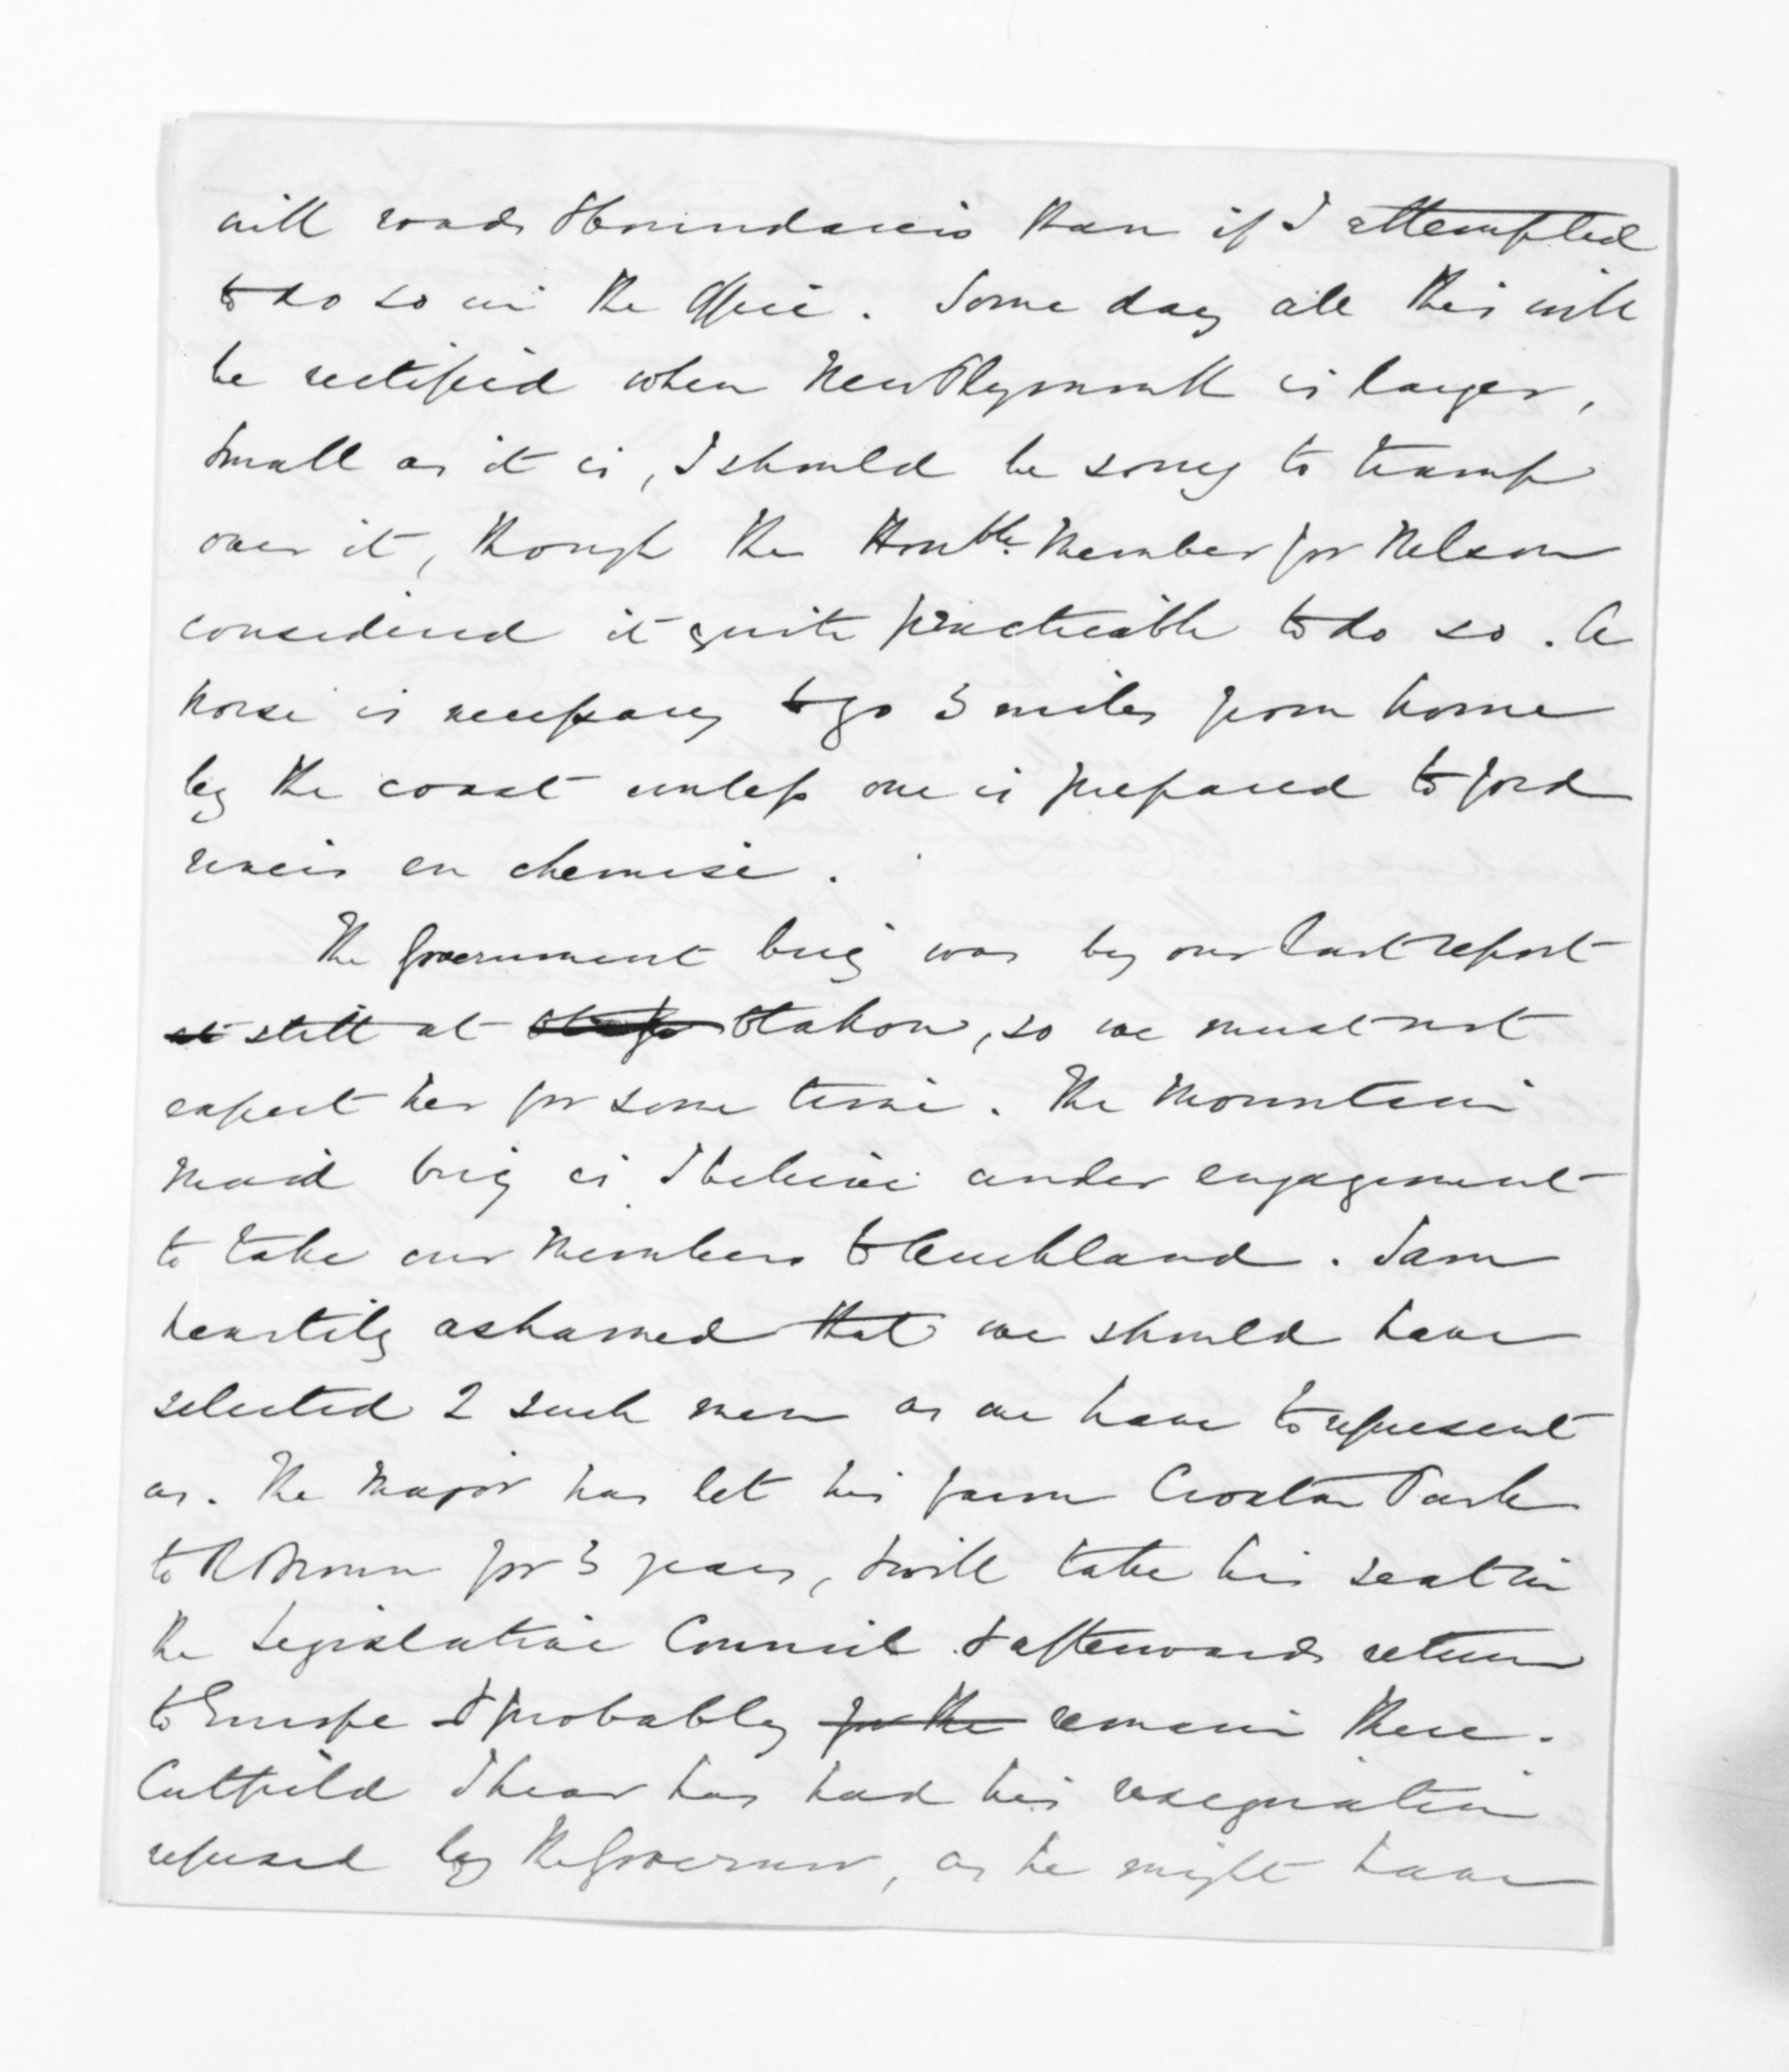 with roads & boundaries than if I attempted
to do so in the Office. Some day all this will
be rectified when New Plymouth is larger,
small as it is, I should be sorry to tramp
over it, though the Honble. Member for Nelson
considered it quite practicable to do so. A
horse is necessary to go 3 miles from home
by the coast unless one is prepared to ford
rivers en chemise.
The Government brig was by our last report
at still at Otakou, so we must not
expect her for some time. The Mountain
Maid brig is I believe under engagement
to take our Members to Auckland. I am
heartily ashamed that we should have
selected 2 such men as we have to represent
us. The Major has let his farm Croxton Park
to R Brown for 3 years, & will take his seat in
the Legislative Council & afterwards return
to Europe & probably for the remain there.
Cutfield I hear has had his resignation
refused by the Governor, as he might have